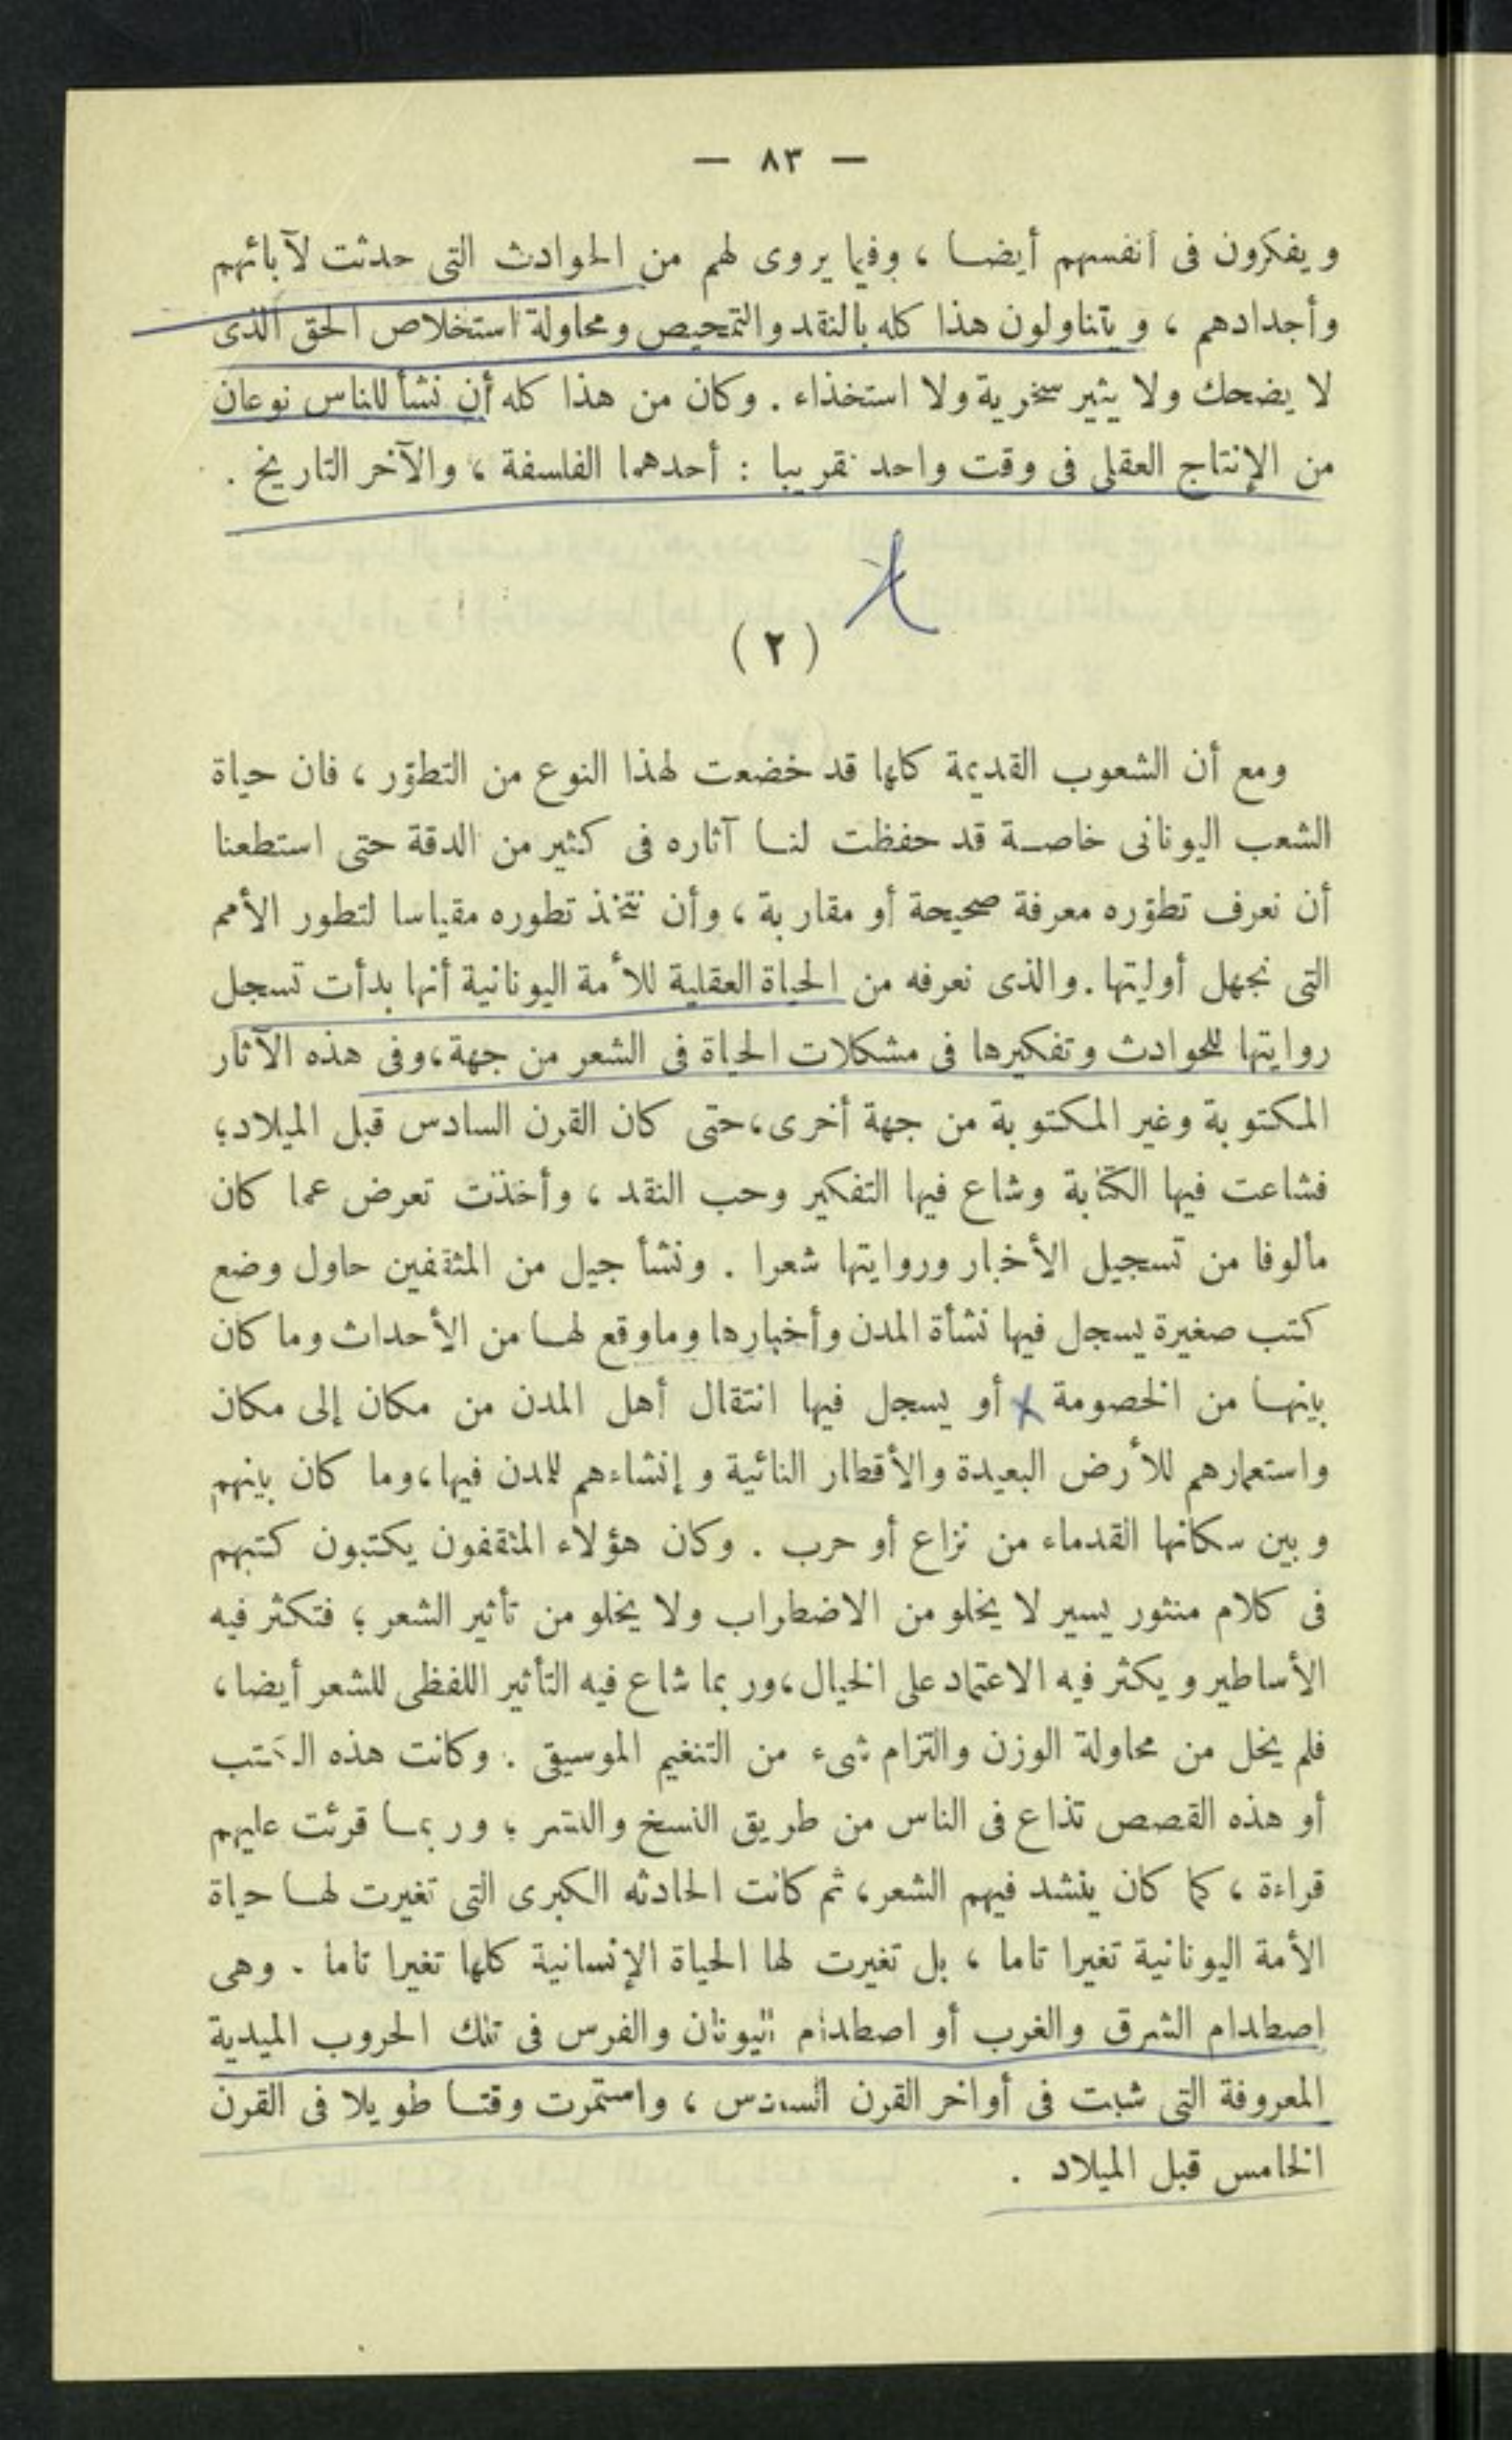 — ٨٣ —
ويفكرون فى أنفسهم أيضا ، وفيما يروى لهم من الحوادث التى حدثت لآبائهم
وأجدادهم ، ويتناولون هذا كله بالنقد والتمحيص ومحاولة استخلاص الحق الذى
لا يضحك ولا يثير سخرية ولا استخذاء . وكان من هذا كله أن نشأ للناس نوعان
من الإنتاج العقلى فى وقت واحد تقريبا : أحدهما الفلسفة ، والآخر التاريخ .
( ٢ )
ومع أن الشعوب القديمة كلها قد خضعت لهذا النوع من التطوّر ، فان حياة
الشعب اليونانى خاصة قد حفظت لنا آثاره فى كثير من الدقة حتى استطعنا
أن نعرف تطوّره معرفة صحيحة أو مقاربة ، وأن نتخذ تطوره مقياسا لتطور الأمم
التى نجهل أوليتها . والذى نعرفه من الحياة العقلية للأمة اليونانية أنها بدأت تسجل
روايتها للحوادث وتفكيرها فى مشكلات الحياة فى الشعر من جهة، وفى هذه الآثار
المكتوبة وغير المكتوبة من جهة أخرى، حتى كان القرن السادس قبل الميلاد؛
فشاعت فيها الكتابة وشاع فيها التفكير وحب النقد ، وأخذت تعرض عما كان
مألوفا من تسجيل الأخبار وروايتها شعرا . ونشأ جيل من المثقفين حاول وضع
كتب صغيرة يسجل فيها نشأة المدن وأخبارها وماوقع لها من الأحداث وما كان
بينها من الخصومة أو يسجل فيها انتقال أهل المدن من مكان إلى مكان
واستعمارهم للأرض البعيدة والأقطار النائية وإنشاءهم للمدن فيها، وما كان بينهم
وبين سكانها القدماء من نزاع أو حرب . وكان هؤلاء المثقفون يكتبون كتبهم
فى كلام منثور يسير لا يخلو من الاضطراب ولا يخلو من تأثير الشعر ؛ فتكثر فيه
الأساطير ويكثر فيه الاعتماد على الخيال، وربما شاع فيه التأثير اللفظى للشعر أيضا،
فلم يخل من محاولة الوزن والتزام شىء من التنغيم الموسيقى . وكانت هذه الكتب
أو هذه القصص تذاع فى الناس من طريق النسخ والنشر ؛ وربما قرئت عليهم
قراءة ، كما كان ينشد فيهم الشعر، ثم كانت الحادثه الكبرى التى تغيرت لها حياة
الأمة اليونانية تغيرا تاما ، بل تغيرت لها الحياة الإنسانية كلها تغيرا تاما . وهى
اصطدام الشرق والغرب أو اصطدام اليونان والفرس فى تلك الحروب الميدية
المعروفة التى شبت فى أواخر القرن السادس ، واستمرت وقتا طويلا فى القرن
الخامس قبل الميلاد .